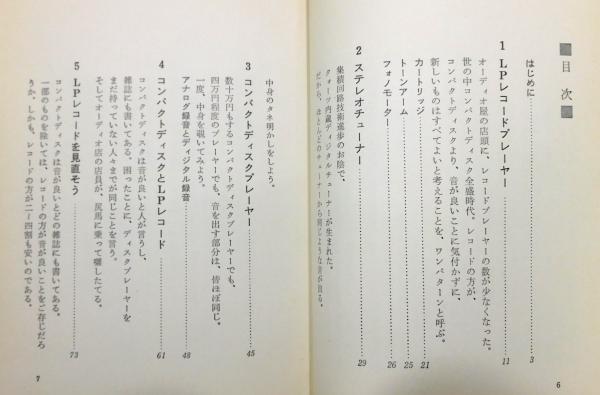 ■目次■
はじめに…………3
1 LPレコードプレーヤー…………11
オーディオ屋の店頭に、レコードプレーヤーの数が少なくなった。
世の中コンパクトディスク全盛時代。レコードの方が、
コンパクトディスクより、音が良いことに気付かずに、
新しいものはすべてよいと考えることを、ワンパターンと呼ぶ。
カートリッジ…………21
トーンアーム…………25
フォノモーター…………26
2 ステレオチューナー…………29
集積回路技術進歩のお陰で、
クォーツ内蔵ディジタルチューナーが生まれた。
だから、ほとんどのチューナーから同じような音が出る。
6
中身のタネ明かしをしよう。
3 コンパクトディスクプレーヤー…………45
数十万円もするコンパクトディスクプレーヤーでも、
四万円程度のプレーヤーでも、音を出す部分は、皆ほぼ同じ。
一度、中身を覗いてみよう。
アナログ録音とディジタル録音…………48
4 コンパクトディスクとLPレコード…………61
コンパクトディスクは音が良いと人が言うし、
雑誌にも書いてある。困ったことに、ディスクプレーヤーを
まだ持っていない人々までが同じことを言う。
そしてオーディオ店の店員が、尻馬に乗って囃したてる。
5 LPレコードを見直そう…………73
コンパクトディスクは音が良いとどの雑誌にも書いてある。
一部のものを除いては、レコードの方が音が良いことをご存じだろ
うか。しかも、レコードの方が二〜四割も安いのである。
7